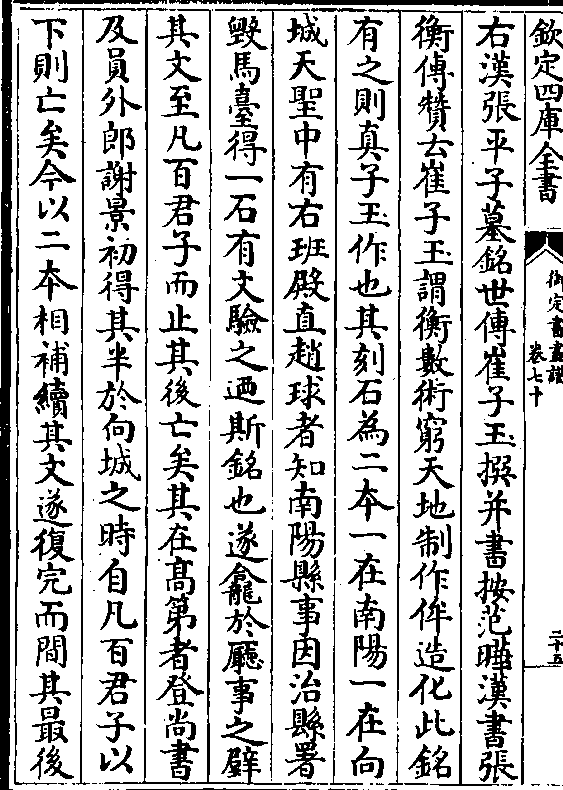 欽定四庫全書
御定書畫譜
卷七十
二十五
右漢張平子墓銘世傳崔子玉撰并書按范曄漢書張
衡傳贊云崔子玉謂衡數術窮天地制作侔造化此銘
有之則真子玉作也其刻石為二本一在南陽一在向
城天聖中有右班殿直趙球者知南陽縣事因治縣署
毀馬臺得一石有文驗之迺斯銘也遂龕於廳事之壁
其文至凡百君子而止其後亡矣其在髙第者登尚書
及員外郎謝景初得其半於向城之時自凡百君子以
下則亡矣今以二本相補續其文遂復完而闕其最後